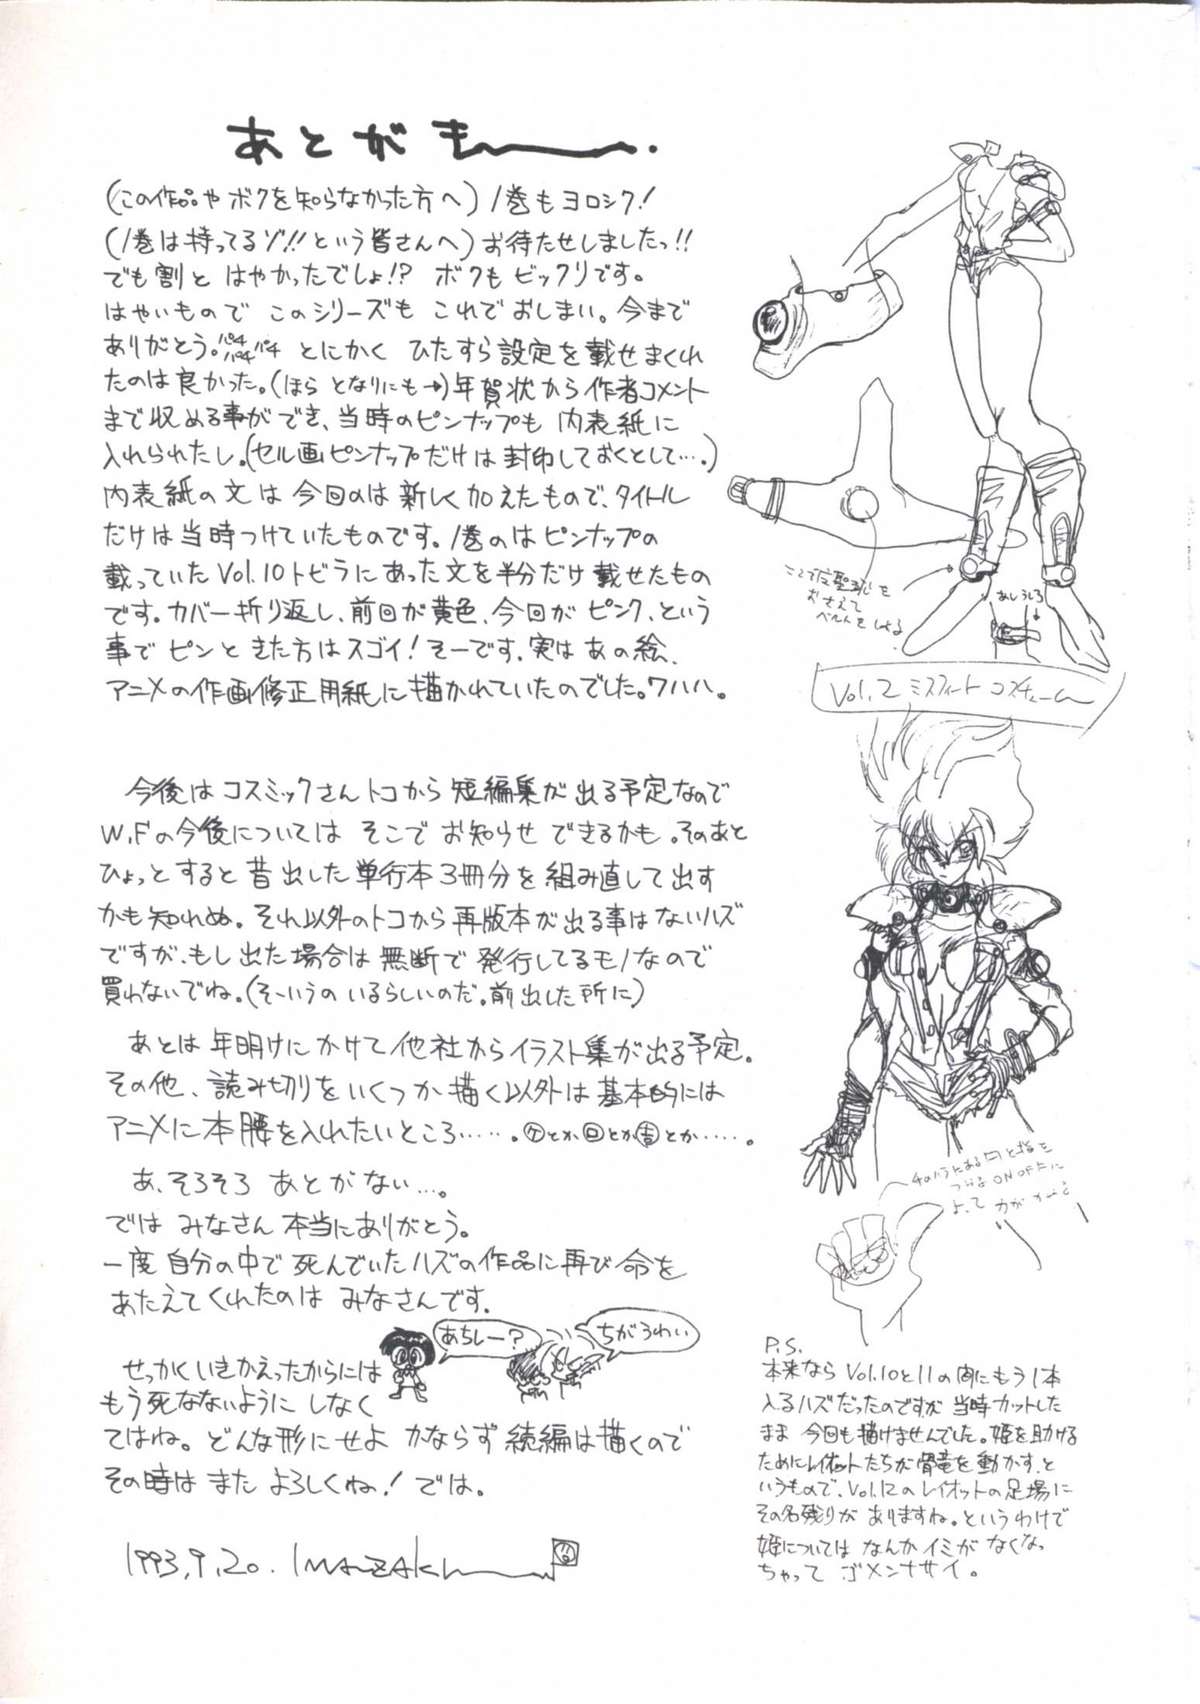 あとがき
(この作品や ボクを知らなかった方へ) 1巻もヨロシク!
(1巻は持ってるゾ!!という皆さんへ) お待たせしましたっ!!
でも割と はやかったでしょ!? ボクもビックリです。
はやいもので このシリーズも これでおしまい。今まで
ありがとう。パチパチパチ とにかく ひたすら設定を載せまくれ
たのは良かった。(ほら となりにも→)年賀状から作者コメント
まで収める事ができ、当時のピンナップも 内表紙に
入れられたし。(セル画ピンナップだけは封印しておくとして…。)
内表紙の文は 今回のは新しく加えたもので、タイトル
だけは当時つけていたものです。1巻のはピンナップの
載っていたVol.10トビラにあった文を半分だけ載せたもの
です。カバー折り返し、前回が黄色、今回がピンク、という
事でピンときた方はスゴイ!そーです、実はあの絵、
アニメの作画修正用紙に描かれていたのでした。ワハハ。
今後はコスミックさんトコから短編集が出る予定なので
W.Fの今後については そこで お知らせ できるかも。そのあと
ひょっとすると昔出した単行本3冊分を組み直して出す
かも知れぬ。それ以外のトコから再版本が出る事はないハズ
ですが、もし出た場合は無断で発行してるモノなので
買わないでね。(そーいうの いるらしいのだ。前出した所に)
あとは年明けにかけて他社からイラスト集が出る予定。
その他、読み切りをいくつか描く以外は基本的には
アニメに本腰を入れたいところ……。㋘とか㋺とか㊒とか……。
あ、そろそろ あとがない…。
では みなさん本当にありがとう。
一度自分の中で死んでいたハズの作品に再び命を
あたえてくれたのは みなさんです。
あちしー?
ちがうわい
せっかくいきかえったからには
もう死なないように しなく
てはね。どんな形にせよ かならず続編は描くので
その時は また よろしくね! では。
1993,9,20. IMAZAKI
おさえて
あしうしろ
Vol.2 ミスフィート コスチューム
P.S.
本来なら Vol.10と11の間にもう1本
入るハズだったのですが 当時カットした
まま 今回も描けませんでした。姫を助ける
ためにレイオットたちが骨竜を動かす、と
いうもので、Vol.12のレイオットの足場に
その名残りが ありますね。というわけで
姫については なんかイミが なくなっ
ちゃって ゴメンナサイ。